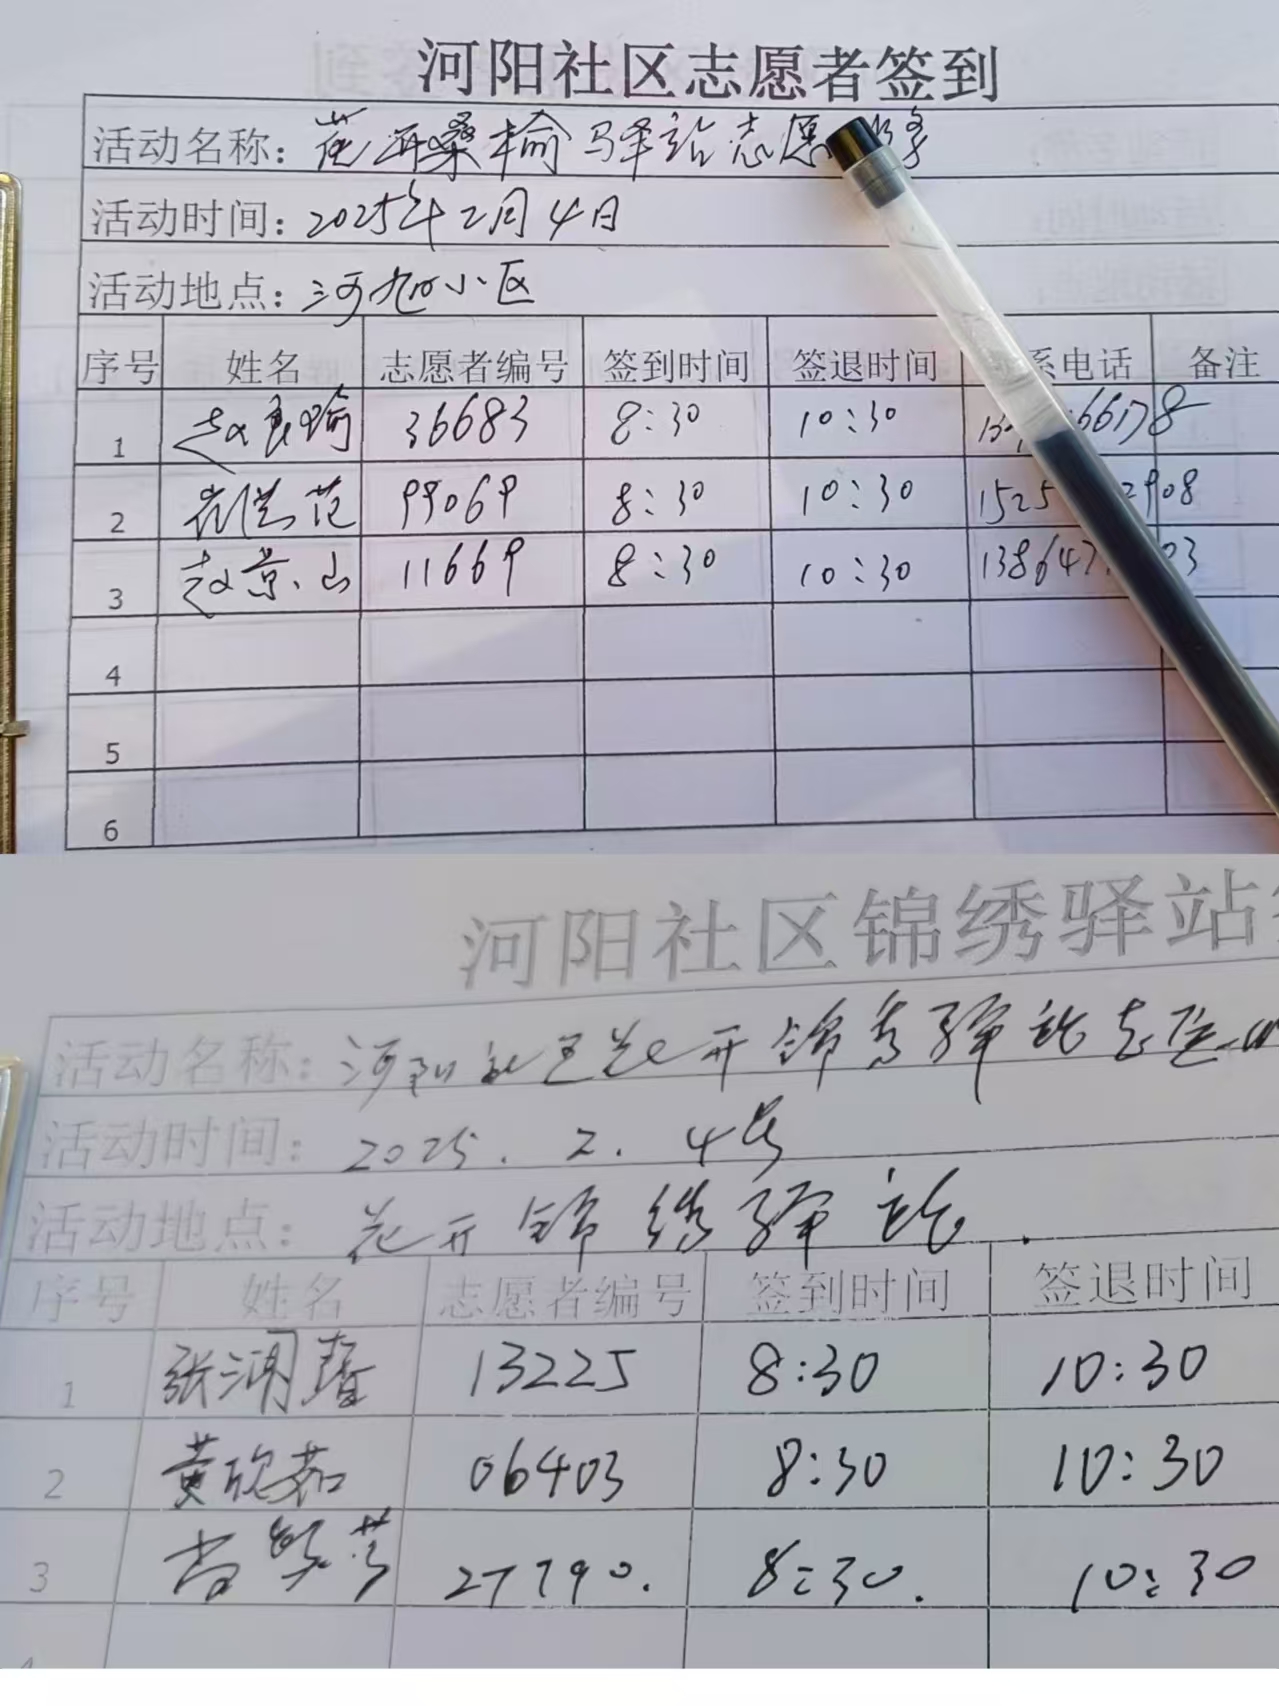 河阳社区志愿者签到
活动名称: 花开桑榆驿站志愿 务
活动时间: 2025年2月4日
活动地点: 河阳小区
序号 姓名 志愿者编号 签到时间 签退时间 系电话 备注
1 赵良瑜 36683 8:30 10:30 66178
2 崔洪范 99069 8:30 10:30 1525 2908
3 赵京山 11669 8:30 10:30 138647 03
4
5
6
河阳社区锦绣驿站
活动名称: 河阳社区花开锦秀驿站志愿
活动时间: 2025. 2. 4号
活动地点: 花开锦绣驿站.
序号 姓名 志愿者编号 签到时间 签退时间
1 张润 13225 8:30 10:30
2 黄欣茹 06403 8:30 10:30
3 27790. 8:30. 10:30